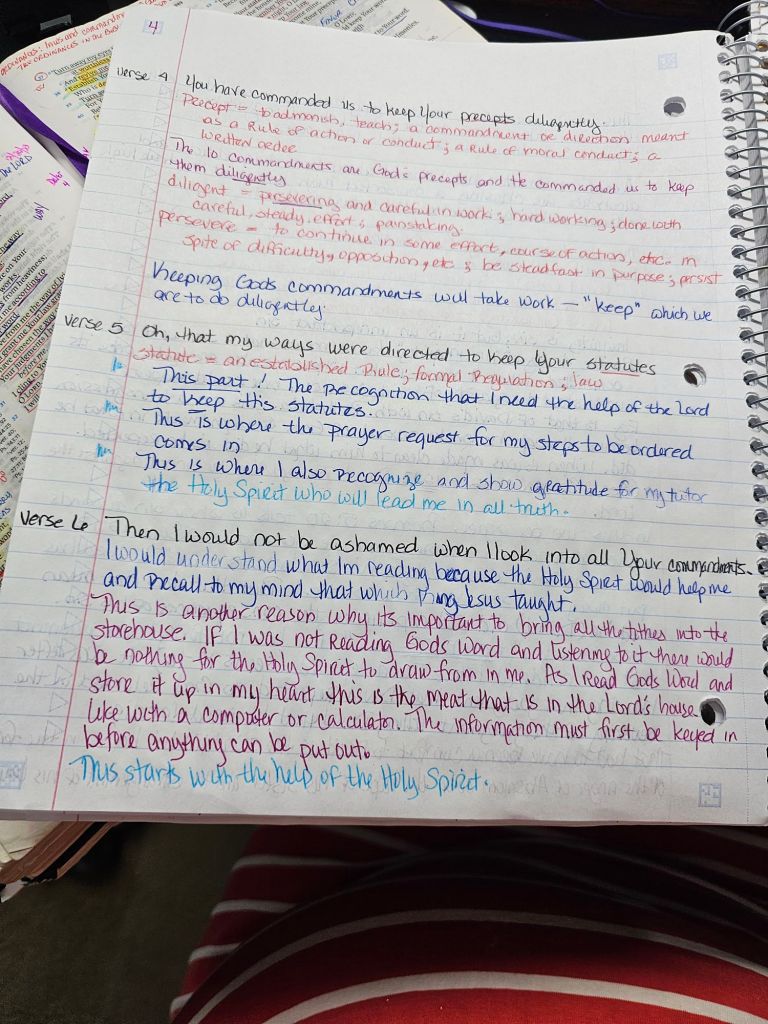 4
Verse 4 You have commanded us to keep Your precepts diligently.
Precept = to admonish, teach; a commandment or direction meant
as a Rule of action or conduct; a Rule of moral conduct; a
written order
The 10 commandments are God's precepts and He commanded us to keep
them diligently
diligent = persevering and careful in work; hard working; done with
careful, steady, effort; painstaking.
persevere = to continue in some effort, course of action, etc. in
spite of difficulty, opposition, etc; be steadfast in purpose; persist
Keeping Gods commandments will take work — "keep" which we
are to do diligently.
Verse 5 Oh, that my ways were directed to keep Your statutes
statute = an established Rule; formal Regulation; law
This part! The Recognition that I need the help of the Lord
to keep His statutes.
This is where the prayer request for my steps to be ordered
comes in
This is where I also recognize and show gratitude for my tutor
the Holy Spirit who will lead me in all truth.
Verse 6 Then I would not be ashamed when I look into all Your commandments.
I would understand what Im reading because the Holy Spirit would help me
and Recall to my mind that which Jesus taught.
This is another reason why its important to bring all the tithes into the
storehouse. If I was not Reading Gods Word and listening to it there would
be nothing for the Holy Spirit to draw from in me. As I Read Gods Word and
store it up in my heart this is the meat that is in the Lord's house
like with a computer or calculator. The information must first be keyed in
before anything can be put out.
This starts with the help of the Holy Spirit.